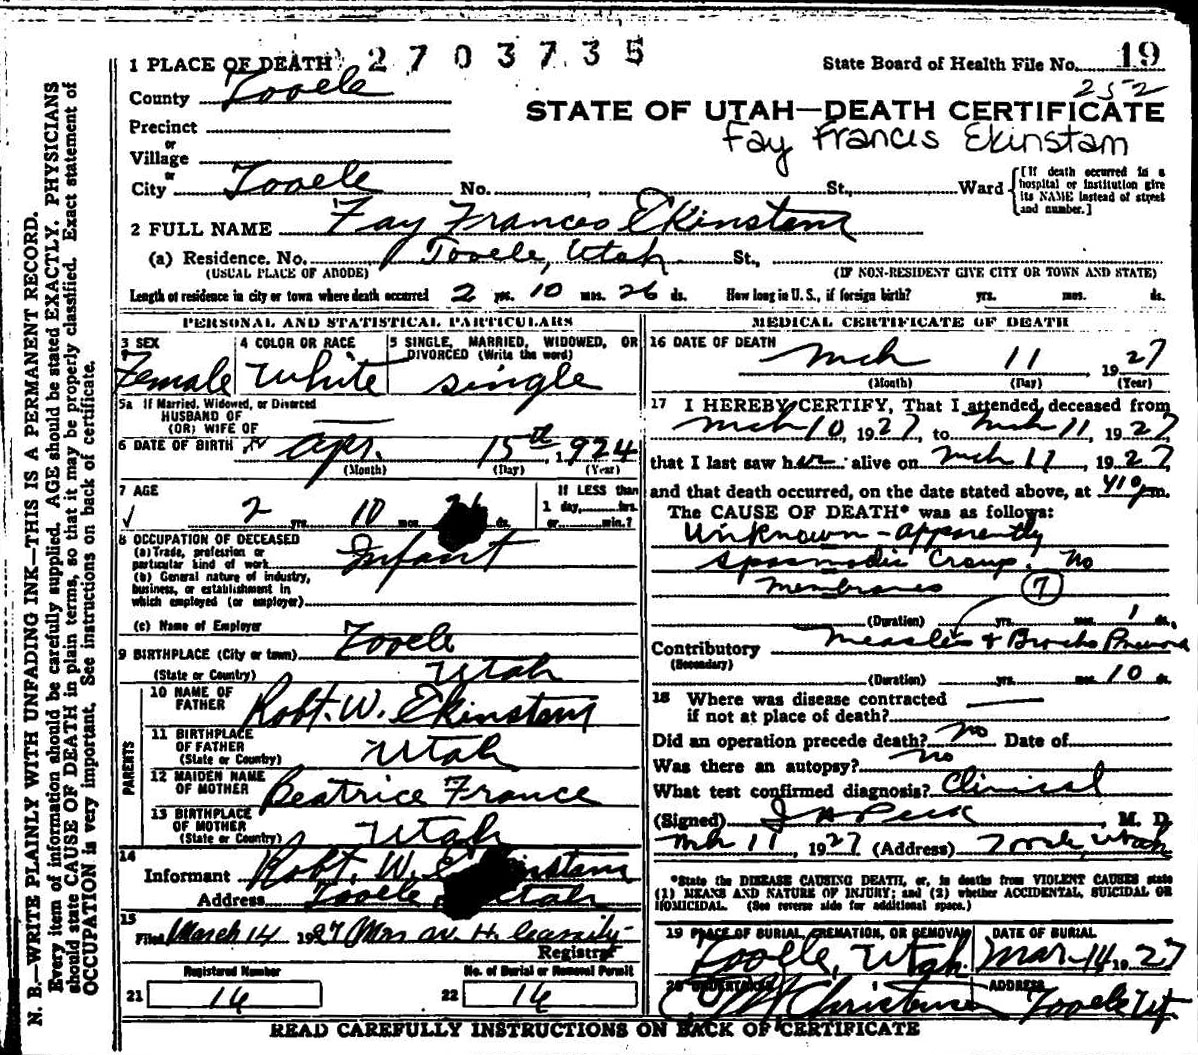 2703735
1 PLACE OF DEATH
State Board of Health File No. 19
252
County Tooele
STATE OF UTAH—DEATH CERTIFICATE
Precinct
Fay Francis Ekinstam
or
Village
or
City Tooele No. , St., Ward [If death occurred in a hospital or institution give its NAME instead of street and number.]
2 FULL NAME Fay Frances Ekinstam
(a) Residence. No. Tooele, Utah St.,
(USUAL PLACE OF ABODE) (IF NON-RESIDENT GIVE CITY OR TOWN AND STATE)
Length of residence in city or town where death occurred 2 yrs. 10 mos. 26 ds. How long in U. S., if foreign birth? yrs. mos. ds.
PERSONAL AND STATISTICAL PARTICULARS
3 SEX 4 COLOR OR RACE 5 SINGLE, MARRIED, WIDOWED, OR
DIVORCED (Write the word)
Female White single
5a If Married, Widowed, or Divorced
HUSBAND OF
(OR) WIFE OF
6 DATE OF BIRTH Apr. 15th, 1924
(Month) (Day) (Year)
7 AGE If LESS than
2 yrs. 10 mos. 26 ds. 1 day, hrs.
or min.?
8 OCCUPATION OF DECEASED
(a) Trade, profession or
particular kind of work Infant
(b) General nature of industry,
business, or establishment in
which employed (or employer)
(c) Name of Employer
9 BIRTHPLACE (City or town) Tooele
(State or Country) Utah
PARENTS
10 NAME OF
FATHER Robt. W. Ekinstam
11 BIRTHPLACE
OF FATHER
(State or Country) Utah
12 MAIDEN NAME
OF MOTHER Beatrice France
13 BIRTHPLACE
OF MOTHER
(State or Country) Utah
14
Informant Robt. W. Ekinstam
Address Tooele Utah
15
Filed March 14 1927 Mrs W. H. Cassity
Registrar
Registered Number No. of Burial or Removal Permit
21 14 22 14
MEDICAL CERTIFICATE OF DEATH
16 DATE OF DEATH
Mch 11, 1927
(Month) (Day) (Year)
17 I HEREBY CERTIFY, That I attended deceased from
Mch 10, 1927, to Mch 11, 1927,
that I last saw her alive on Mch 11, 1927,
and that death occurred, on the date stated above, at 410 pm.
The CAUSE OF DEATH* was as follows:
Unknown - apparently
Spasmodic Croup. No
membranes (7)
(Duration) yrs. mos. 1 ds.
Contributory Measles & Broncho Pneumo
(Secondary)
(Duration) yrs. mos. 10 ds.
18 Where was disease contracted
if not at place of death?
Did an operation precede death? no Date of
Was there an autopsy? no
What test confirmed diagnosis? Clinical
(Signed) J A Peck, M. D.
Mch 11, 1927 (Address) Tooele, Utah
*State the DISEASE CAUSING DEATH, or, in deaths from VIOLENT CAUSES state
(1) MEANS AND NATURE OF INJURY; and (2) whether ACCIDENTAL, SUICIDAL OR
HOMICIDAL. (See reverse side for additional space.)
19 PLACE OF BURIAL, CREMATION, OR REMOVAL DATE OF BURIAL
Tooele, Utah. Mar 14 1927
20 UNDERTAKER ADDRESS
Christensen Tooele Ut.
READ CAREFULLY INSTRUCTIONS ON BACK OF CERTIFICATE
N. B.—WRITE PLAINLY WITH UNFADING INK—THIS IS A PERMANENT RECORD.
Every item of information should be carefully supplied. AGE should be stated EXACTLY. PHYSICIANS
should state CAUSE OF DEATH in plain terms, so that it may be properly classified. Exact statement of
OCCUPATION is very important. See instructions on back of certificate.